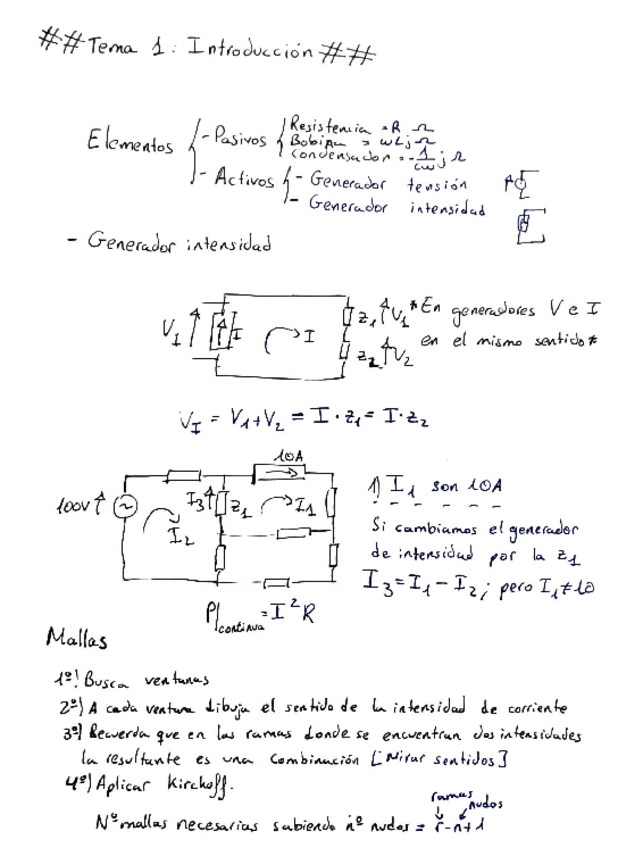 ##Tema 1: Introducción##
Elementos
- Pasivos
Resistencia = R Ω
Bobina = ωLj Ω
Condensador = -1/cω j Ω
- Activos
- Generador tensión
- Generador intensidad
- Generador intensidad
V_I I I z₁ V₁ z₂ V₂
*En generadores V e I
en el mismo sentido*
V_I = V₁+V₂ = I·z₁= I·z₂
10A
100V I₂ I₃ z₁ I₁
1) I₁ son 10A
Si cambiamos el generador
de intensidad por la z₁
I₃=I₁-I₂; pero I₁≠10
P|continua = I²R
Mallas
1º) Busca ventanas
2º) A cada ventana dibuja el sentido de la intensidad de corriente
3º) Recuerda que en las ramas donde se encuentran dos intensidades
la resultante es una combinación [Mirar sentidos]
4º) Aplicar Kirchoff.
ramas nudos
Nº mallas necesarias sabiendo nº nudos = r-n+1